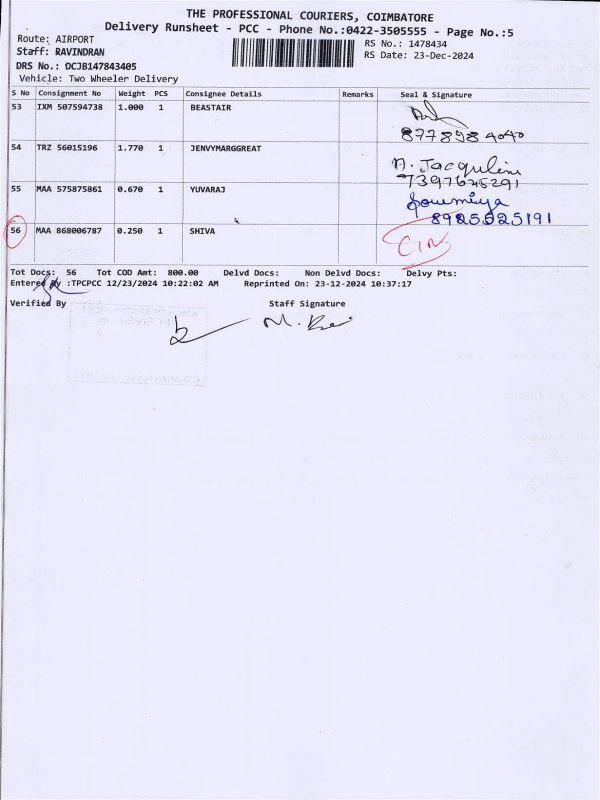 THE PROFESSIONAL COURIERS, COIMBATORE
Delivery Runsheet - PCC - Phone No.:0422-3505555 - Page No.:5
Route: AIRPORT
RS No.: 1478434
Staff: RAVINDRAN
RS Date: 23-Dec-2024
DRS No.: DCJB147843405
Vehicle: Two Wheeler Delivery
S No Consignment No Weight PCS Consignee Details Remarks Seal & Signature
53 IXM 507594738 1.000 1 BEASTAIR
8778984040
54 TRZ 56015196 1.770 1 JENVYMARGGREAT
A. Jacquline
7397645291
55 MAA 575875861 0.670 1 YUVARAJ
Soumiya
8925525191
56 MAA 868006787 0.250 1 SHIVA
Tot Docs: 56 Tot COD Amt: 800.00 Delvd Docs: Non Delvd Docs: Delvy Pts:
Entered By :TPCPCC 12/23/2024 10:22:02 AM Reprinted On: 23-12-2024 10:37:17
Verified By Staff Signature